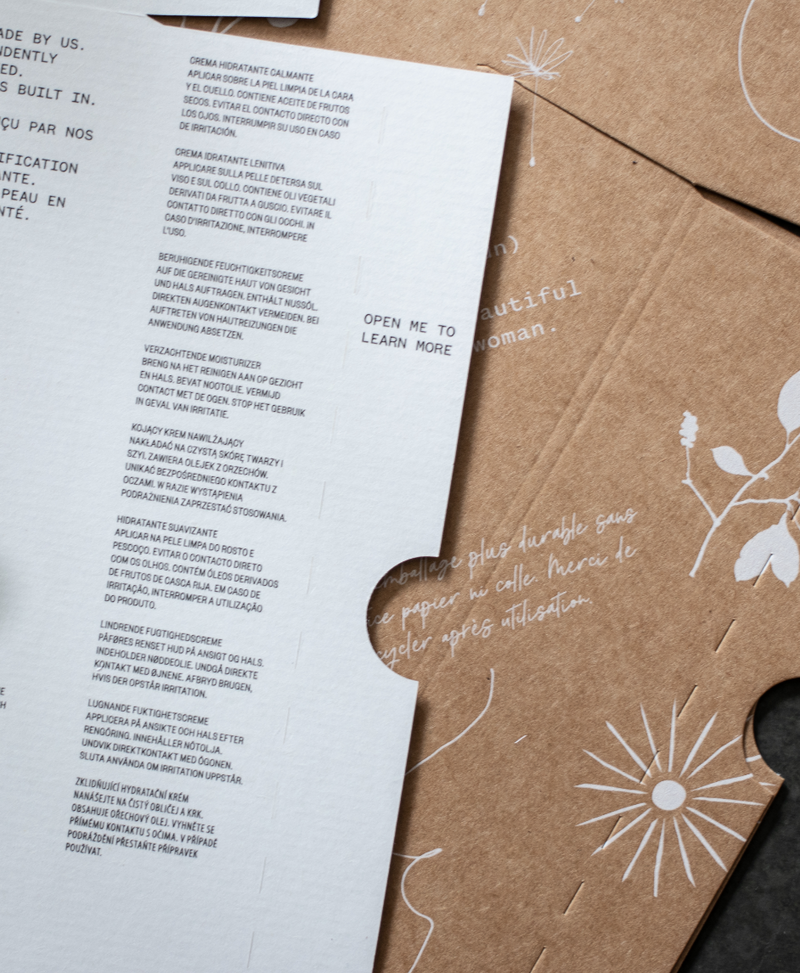 ADE BY US.
NDENTLY
ED.
S BUILT IN.
ÇU PAR NOS
IFICATION
ANTE.
PEAU EN
NTÉ.
E
H
CREMA HIDRATANTE CALMANTE
APLICAR SOBRE LA PIEL LIMPIA DE LA CARA
Y EL CUELLO. CONTIENE ACEITE DE FRUTOS
SECOS. EVITAR EL CONTACTO DIRECTO CON
LOS OJOS. INTERRUMPIR SU USO EN CASO
DE IRRITACIÓN.
CREMA IDRATANTE LENITIVA
APPLICARE SULLA PELLE DETERSA SUL
VISO E SUL COLLO. CONTIENE OLI VEGETALI
DERIVATI DA FRUTTA A GUSCIO. EVITARE IL
CONTATTO DIRETTO CON GLI OCCHI. IN
CASO D'IRRITAZIONE, INTERROMPERE
L'USO.
BERUHIGENDE FEUCHTIGKEITSCREME
AUF DIE GEREINIGTE HAUT VON GESICHT
UND HALS AUFTRAGEN. ENTHÄLT NUSSÖL.
DIREKTEN AUGENKONTAKT VERMEIDEN. BEI
AUFTRETEN VON HAUTREIZUNGEN DIE
ANWENDUNG ABSETZEN.
VERZACHTENDE MOISTURIZER
BRENG NA HET REINIGEN AAN OP GEZICHT
EN HALS. BEVAT NOOTOLIE. VERMIJD
CONTACT MET DE OGEN. STOP HET GEBRUIK
IN GEVAL VAN IRRITATIE.
KOJĄCY KREM NAWILŻAJĄCY
NAKŁADAĆ NA CZYSTĄ SKÓRĘ TWARZY I
SZYI. ZAWIERA OLEJEK Z ORZECHÓW.
UNIKAĆ BEZPOŚREDNIEGO KONTAKTU Z
OCZAMI. W RAZIE WYSTĄPIENIA
PODRAŻNIENIA ZAPRZESTAĆ STOSOWANIA.
HIDRATANTE SUAVIZANTE
APLICAR NA PELE LIMPA DO ROSTO E
PESCOÇO. EVITAR O CONTACTO DIRETO
COM OS OLHOS. CONTÉM ÓLEOS DERIVADOS
DE FRUTOS DE CASCA RIJA. EM CASO DE
IRRITAÇÃO, INTERROMPER A UTILIZAÇÃO
DO PRODUTO.
LINDRENDE FUGTIGHEDSCREME
PÅFØRES RENSET HUD PÅ ANSIGT OG HALS.
INDEHOLDER NØDDEOLIE. UNDGÅ DIREKTE
KONTAKT MED ØJNENE. AFBRYD BRUGEN,
HVIS DER OPSTÅR IRRITATION.
LUGNANDE FUKTIGHETSCREME
APPLICERA PÅ ANSIKTE OCH HALS EFTER
RENGÖRING. INNEHÅLLER NÖTOLJA.
UNDVIK DIREKTKONTAKT MED ÖGONEN.
SLUTA ANVÄNDA OM IRRITATION UPPSTÅR.
ZKLIDŇUJÍCÍ HYDRATAČNÍ KRÉM
NANÁŠEJTE NA ČISTÝ OBLIČEJ A KRK.
OBSAHUJE OŘECHOVÝ OLEJ. VYHNĚTE SE
PŘÍMÉMU KONTAKTU S OČIMA. V PŘÍPADĚ
PODRÁŽDĚNÍ PŘESTAŇTE PŘÍPRAVEK
POUŽÍVAT.
OPEN ME TO
LEARN MORE
n)
autiful
woman.
mballage plus durable sans
ce papier ni colle. Merci de
cycler après utilisation.